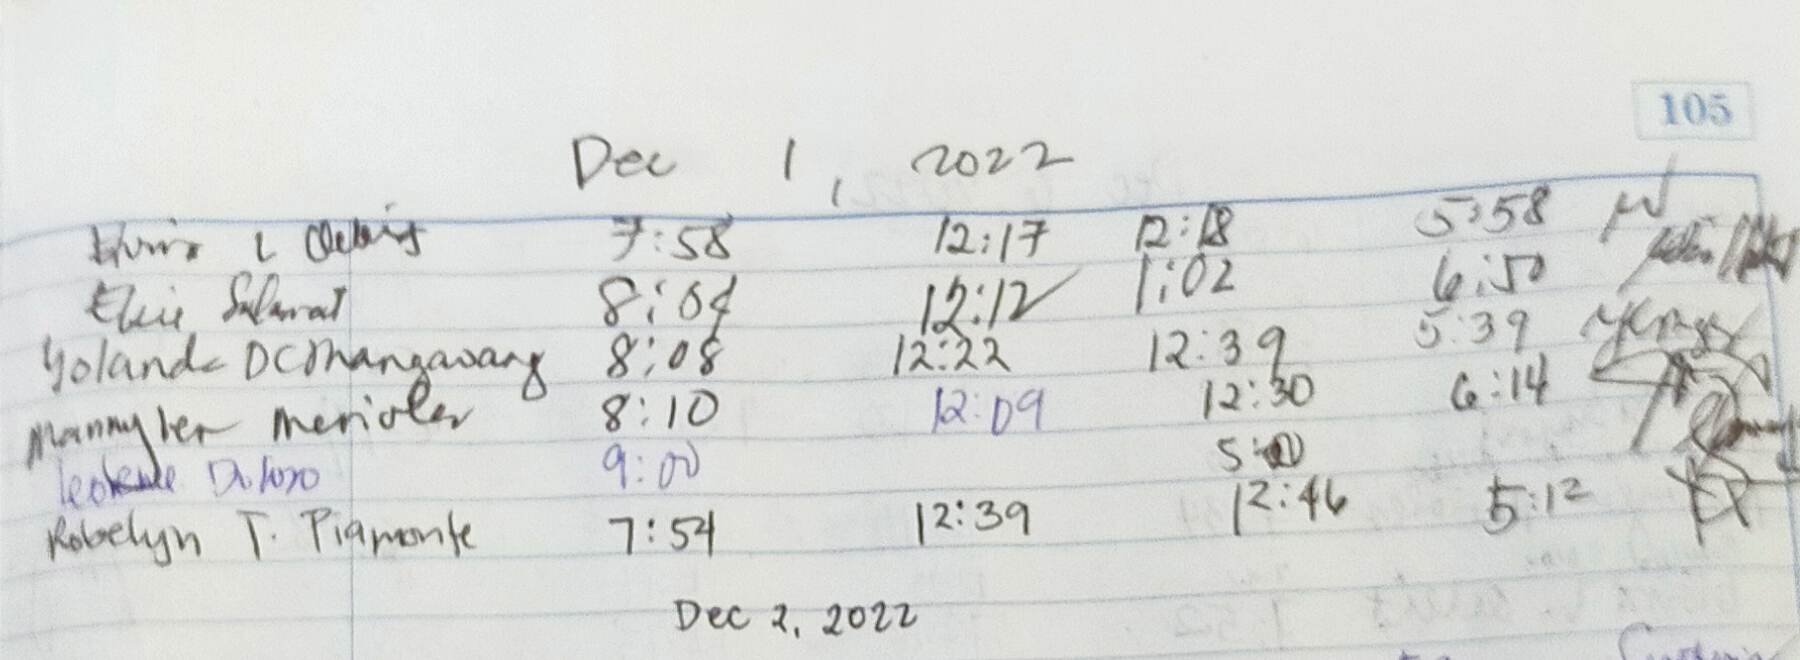 105
Dec 1, 2022
L 7:58 12:17 12:18 5:58
Salamat 8:04 12:12 1:02 6:50
Yolanda DC Mangawang 8:08 12:22 12:39 5:39
Mannylyn Merioles 8:10 12:09 12:30 6:14
9:00 5:00
Robelyn T. Piamonte 7:54 12:39 12:46 5:12
Dec 2, 2022